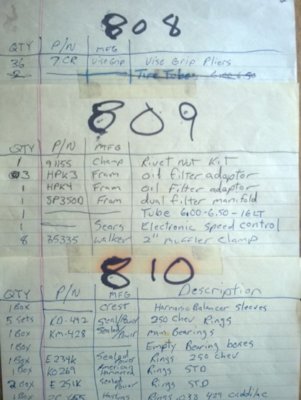 808
QTY P/N MFG
36 7CR Vise Grip Vise Grip Pliers
2 Tire Tubes 6.00-6.50
809
QTY P/N MFG
1 91155 Champ Rivet nut Kit
3 HPK3 Fram Oil filter adaptor
1 HPK4 Fram Oil filter adaptor
1 SP3500 Fram dual filter manifold
1 — — Tube 6.00-6.50-16LT
1 — Sears Electronic speed control
8 35335 Walker 2" muffler Clamp
810
QTY P/N MFG Description
1 Box Crest Harmonic Balancer Sleeves
5 sets KD-492 Seal/Power 250 Chev Rings
1 Box KM-428 Sealed Power Main Bearings
1 Box Empty Bearing boxes
1 Box E234K Sealed Power Rings 250 chev
1 Box KO269 American Hammered Rings STD
2 Box E251K Sealed Power Rings STD
1 Box Hastings Rings